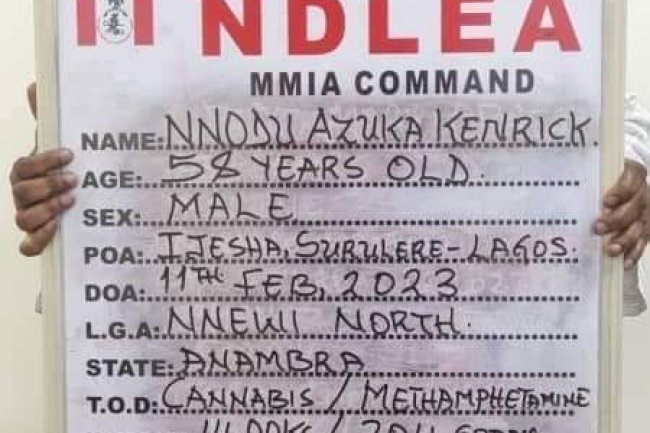 NDLEA
MMIA COMMAND
NAME: NNODU AZUKA KENRICK.
AGE: 58 YEARS OLD.
SEX: MALE
POA: IJESHA, SURULERE-LAGOS.
DOA: 11TH FEB, 2023
L.G.A: NNEWI NORTH.
STATE: ANAMBRA
T.O.D: CANNABIS / METHAMPHETAMINE